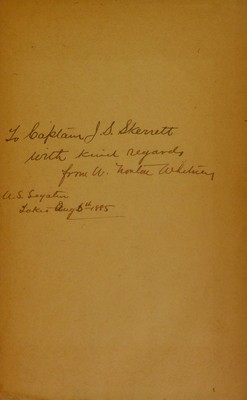 To Captain J. S. Skerrett
with kind regards
from W. Norton Whitney
U. S. Legation
Tokio Aug 6th 1885